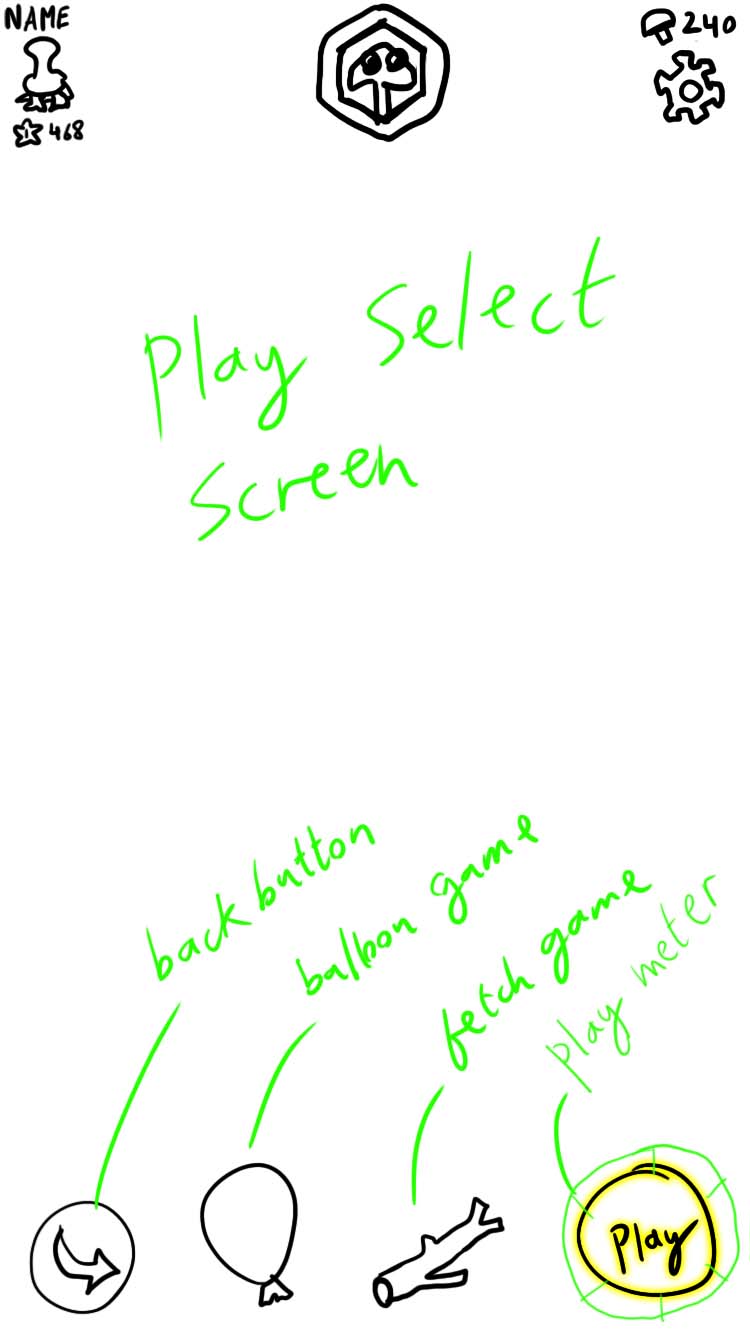 NAME
240
1
468
Play Select
Screen
back button
balloon game
fetch game
play meter
Play